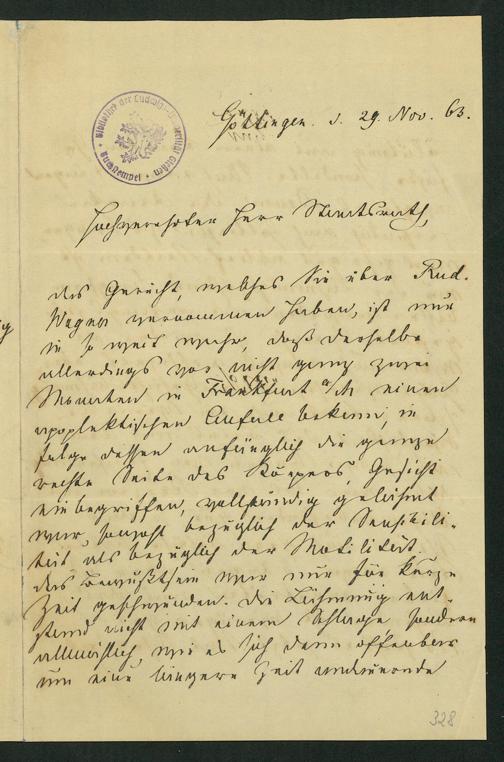 Göttingen. d. 29. Nov. 63.
Bibliothek der Ludwigs-Universität Giessen
Buchstempel
Hochverehrter Herr Staatsrath,
das Gerücht, welches Sie über Rud.
Wagner vernommen haben, ist nur
in so weit wahr, daß derselbe
allerdings vor nicht ganz zwei
Monaten in Frankfurt a/M einen
apoplektischen Anfall bekam, in
folge dessen anfänglich die ganze
rechte Seite des Körpers, Gesicht
einbegriffen, vollständig gelähmt
war, sowohl bezüglich der Sensibili-
tät als bezüglich der Motilität.
Das Bewußtsein war nur für kurze
Zeit geschwunden. Die Lähmung ent-
stand nicht mit einem Schlage sondern
allmählich, wie es sich denn offenbar
um eine längere Zeit andauernde
328